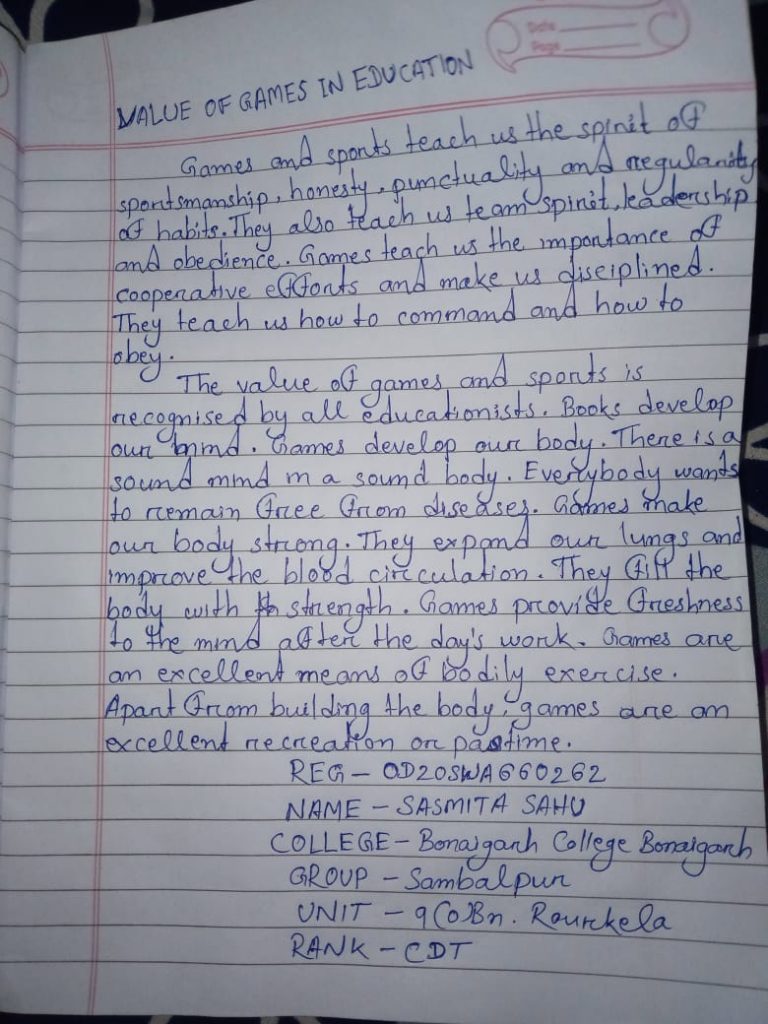 Date
Page
VALUE OF GAMES IN EDUCATION
Games and sports teach us the spirit of
sportsmanship, honesty, punctuality and regularity
of habits. They also teach us team spirit, leadership
and obedience. Games teach us the importance of
cooperative efforts and make us disciplined.
They teach us how to command and how to
obey.
The value of games and sports is
recognised by all educationists. Books develop
our mind. Games develop our body. There is a
sound mind in a sound body. Everybody wants
to remain free from diseases. Games make
our body strong. They expand our lungs and
improve the blood circulation. They fill the
body with strength. Games provide freshness
to the mind after the day's work. Games are
an excellent means of bodily exercise.
Apart from building the body, games are an
excellent recreation or pastime.
REG - OD20SWA660262
NAME - SASMITA SAHU
COLLEGE - Bonaigarh College Bonaigarh
GROUP - Sambalpur
UNIT - 9(O)Bn. Rourkela
RANK - CDT